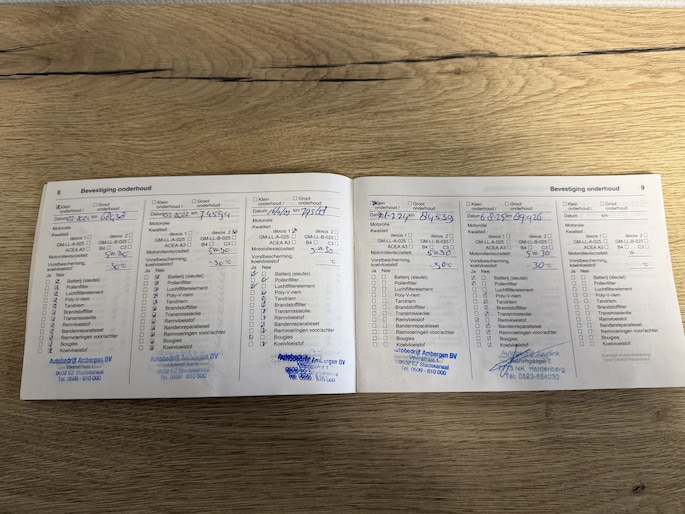 8 Bevestiging onderhoud
Klein onderhoud / Groot onderhoud
Datum km
Motorolie
Kwaliteit
dexos 1 dexos 2
GM-LL-A-025 GM-LL-B-025
ACEA A3 B4 C3
Motorolieviscositeit: 5w30
Vorstbescherming,
koelvloeistof -30 °C
Ja Nee
Batterij (sleutel)
Pollenfilter
Luchtfilterelement
Poly-V-riem
Tandriem
Brandstoffilter
Transmissieolie
Remvloeistof
Bandenreparatieset
Remvoeringen voor/achter
Bougies
Koelvloeistof
Autobedrijf Ambergen BV
9502 EZ Stadskanaal
Tel. 0599 - 610 000
Klein onderhoud / Groot onderhoud
Datum 2022 km 74594
Motorolie
Kwaliteit
dexos 1 dexos 2
GM-LL-A-025 GM-LL-B-025
ACEA A3 B4 C3
Motorolieviscositeit: 5w30
Vorstbescherming,
koelvloeistof -30 °C
Ja Nee
Batterij (sleutel)
Pollenfilter
Luchtfilterelement
Poly-V-riem
Tandriem
Brandstoffilter
Transmissieolie
Remvloeistof
Bandenreparatieset
Remvoeringen voor/achter
Bougies
Koelvloeistof
Autobedrijf Ambergen BV
9502 EZ Stadskanaal
Tel. 0599 - 610 000
Klein onderhoud / Groot onderhoud
Datum km
Motorolie
Kwaliteit
dexos 1 dexos 2
GM-LL-A-025 GM-LL-B-025
ACEA A3 B4 C3
Motorolieviscositeit: 5w30
Vorstbescherming,
koelvloeistof °C
Ja Nee
Batterij (sleutel)
Pollenfilter
Luchtfilterelement
Poly-V-riem
Tandriem
Brandstoffilter
Transmissieolie
Remvloeistof
Bandenreparatieset
Remvoeringen voor/achter
Bougies
Koelvloeistof
Autobedrijf Ambergen BV
Bevestiging onderhoud 9
Klein onderhoud / Groot onderhoud
Datum 1-2-24 km 84539
Motorolie
Kwaliteit
dexos 1 dexos 2
GM-LL-A-025 GM-LL-B-025
ACEA A3 B4 C3
Motorolieviscositeit: 5w30
Vorstbescherming,
koelvloeistof -30 °C
Ja Nee
Batterij (sleutel)
Pollenfilter
Luchtfilterelement
Poly-V-riem
Tandriem
Brandstoffilter
Transmissieolie
Remvloeistof
Bandenreparatieset
Remvoeringen voor/achter
Bougies
Koelvloeistof
Autobedrijf Ambergen BV
Veenstraat 1
9502 EZ Stadskanaal
Tel. 0599 - 610 000
Klein onderhoud / Groot onderhoud
Datum 6-8-25 km 89926
Motorolie
Kwaliteit
dexos 1 dexos 2
GM-LL-A-025 GM-LL-B-025
ACEA A3 B4 C3
Motorolieviscositeit: 5w30
Vorstbescherming,
koelvloeistof -30 °C
Ja Nee
Batterij (sleutel)
Pollenfilter
Luchtfilterelement
Poly-V-riem
Tandriem
Brandstoffilter
Transmissieolie
Remvloeistof
Bandenreparatieset
Remvoeringen voor/achter
Bougies
Koelvloeistof
Hardenberg
Klein onderhoud / Groot onderhoud
Datum km
Motorolie
Kwaliteit
dexos 1 dexos 2
GM-LL-A-025 GM-LL-B-025
ACEA A3 B4 C3
Motorolieviscositeit:
Vorstbescherming,
koelvloeistof °C
Ja Nee
Batterij (sleutel)
Pollenfilter
Luchtfilterelement
Poly-V-riem
Tandriem
Brandstoffilter
Transmissieolie
Remvloeistof
Bandenreparatieset
Remvoeringen voor/achter
Bougies
Koelvloeistof